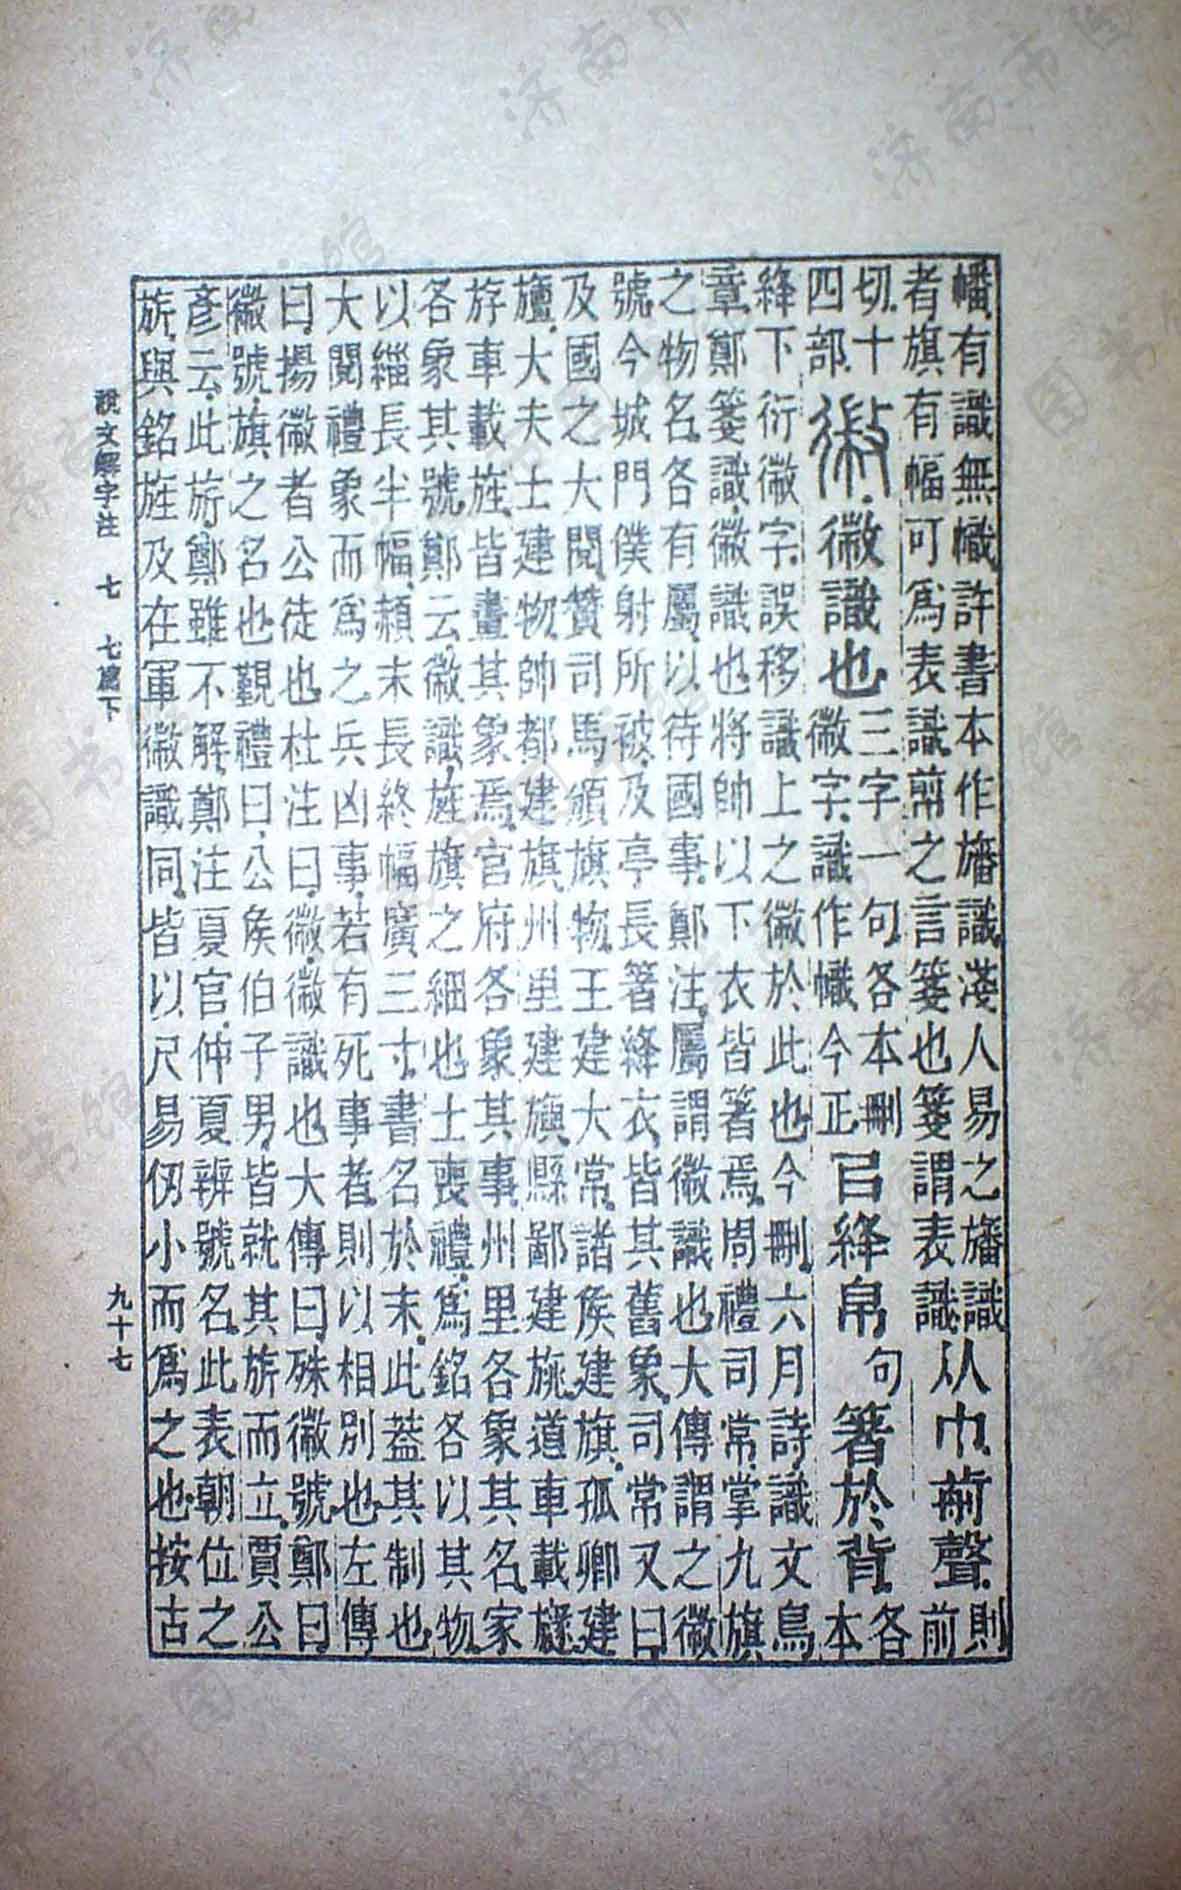 幡有識無幟許書本作旛識淺人易之旛識
者旗有幅可爲表識䈴之言箋也箋謂表識
从巾歬聲
則
前
切十
四部
幑
幑識也
三字一句各本刪
幑字識作幟今正
㠯絳帛
句
箸於背
各
本
絳下衍幑字誤移識上之幑於此也今刪六月詩識文鳥
章鄭箋識幑識也將帥以下衣皆箸焉周禮司常掌九旗
之物名各有屬以待國事鄭注屬謂幑識也大傳謂之幑
號今城門僕射所被及亭長箸絳衣皆其舊象司常又曰
及國之大閱贊司馬頒旗物王建大常諸侯建旗孤卿建
旜大夫士建物帥都建旗州里建旟縣鄙建旐道車載旞
斿車載旌皆畫其象焉官府各象其事州里各象其名家
各象其號鄭云幑識旌旗之細也士喪禮爲銘各以其物
以緇長半幅赬末長終幅廣三寸書名於末此葢其制也
大閱禮象而爲之兵凶事若有死事者則以相別也左傳
曰揚幑者公徒也杜注曰幑幑識也大傳曰殊幑號鄭曰
幑號旗之名也覲禮曰公侯伯子男皆就其旂而立賈公
彥云此旂鄭雖不解鄭注夏官仲夏辨號名此表朝位之
旂與銘旌及在軍幑識同皆以尺易仞小而爲之也按古
說文解字注 七 七篇下
九十七
济南市图书馆